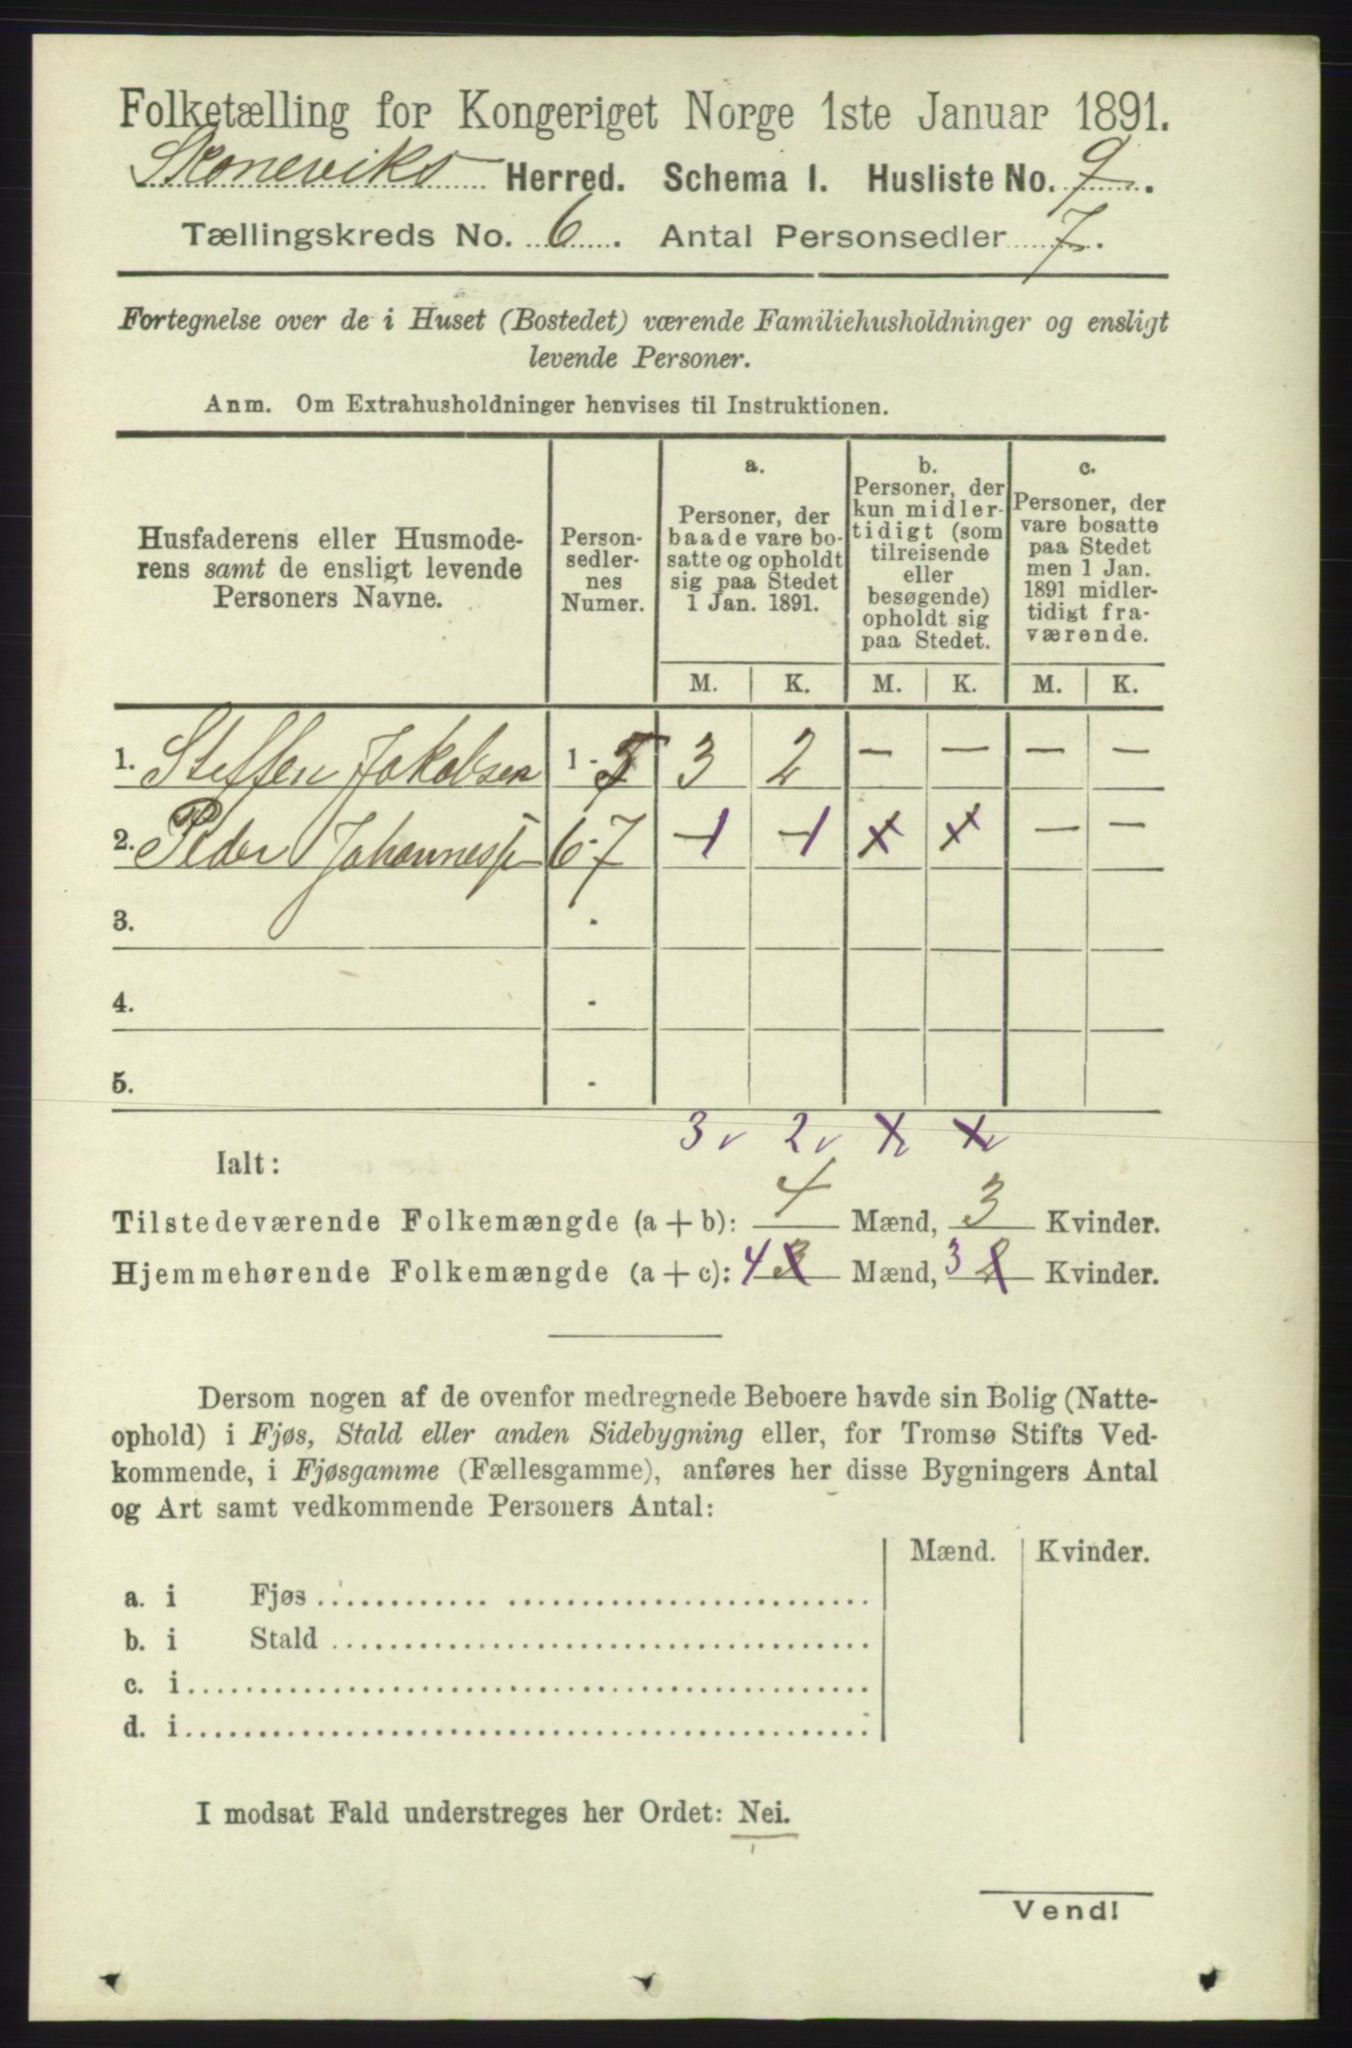 Folketælling for Kongeriget Norge 1ste Januar 1891.
Skoneviks Herred. Schema I. Husliste No. 9.
Tællingskreds No. 6. Antal Personsedler 7.
Fortegnelse over de i Huset (Bostedet) værende Familiehusholdninger og ensligt
levende Personer.
Anm. Om Extrahusholdninger henvises til Instruktionen.
Husfaderens eller Husmode-
rens samt de ensligt levende
Personers Navne.
Person-
sedler-
nes
Numer.
a.
Personer, der
baade vare bo-
satte og opholdt
sig paa Stedet
1 Jan. 1891.
b.
Personer, der
kun midler-
tidigt (som
tilreisende
eller
besøgende)
opholdt sig
paa Stedet.
c.
Personer, der
vare bosatte
paa Stedet
men 1 Jan.
1891 midler-
tidigt fra-
værende.
M. K. M. K. M. K.
1. Steffen Jakobsen 1 - 5 3 2 — — — —
2. Peder Johannes 6-7 1 1 x x — —
3. -
4. -
5. -
3 2
Ialt:
Tilstedeværende Folkemængde (a + b): 4 Mænd, 3 Kvinder.
Hjemmehørende Folkemængde (a + c): 4 3 Mænd, 3 2 Kvinder.
Dersom nogen af de ovenfor medregnede Beboere havde sin Bolig (Natte-
ophold) i Fjøs, Stald eller anden Sidebygning eller, for Tromsø Stifts Ved-
kommende, i Fjøsgamme (Fællesgamme), anføres her disse Bygningers Antal
og Art samt vedkommende Personers Antal:
Mænd. Kvinder.
a. i Fjøs
b. i Stald
c. i
d. i
I modsat Fald understreges her Ordet: Nei.
Vend!